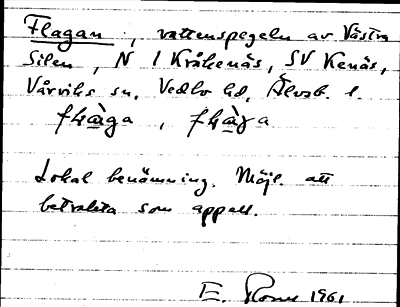 Flagan, vattenspegeln av Västra
Silen, N I Kråkenäs, SV Kenäs,
Vårviks sn, Vedbo hd, Älvsb. l.
Lokal benämning. Möjl. att
betrakta som appell.
E. 1961